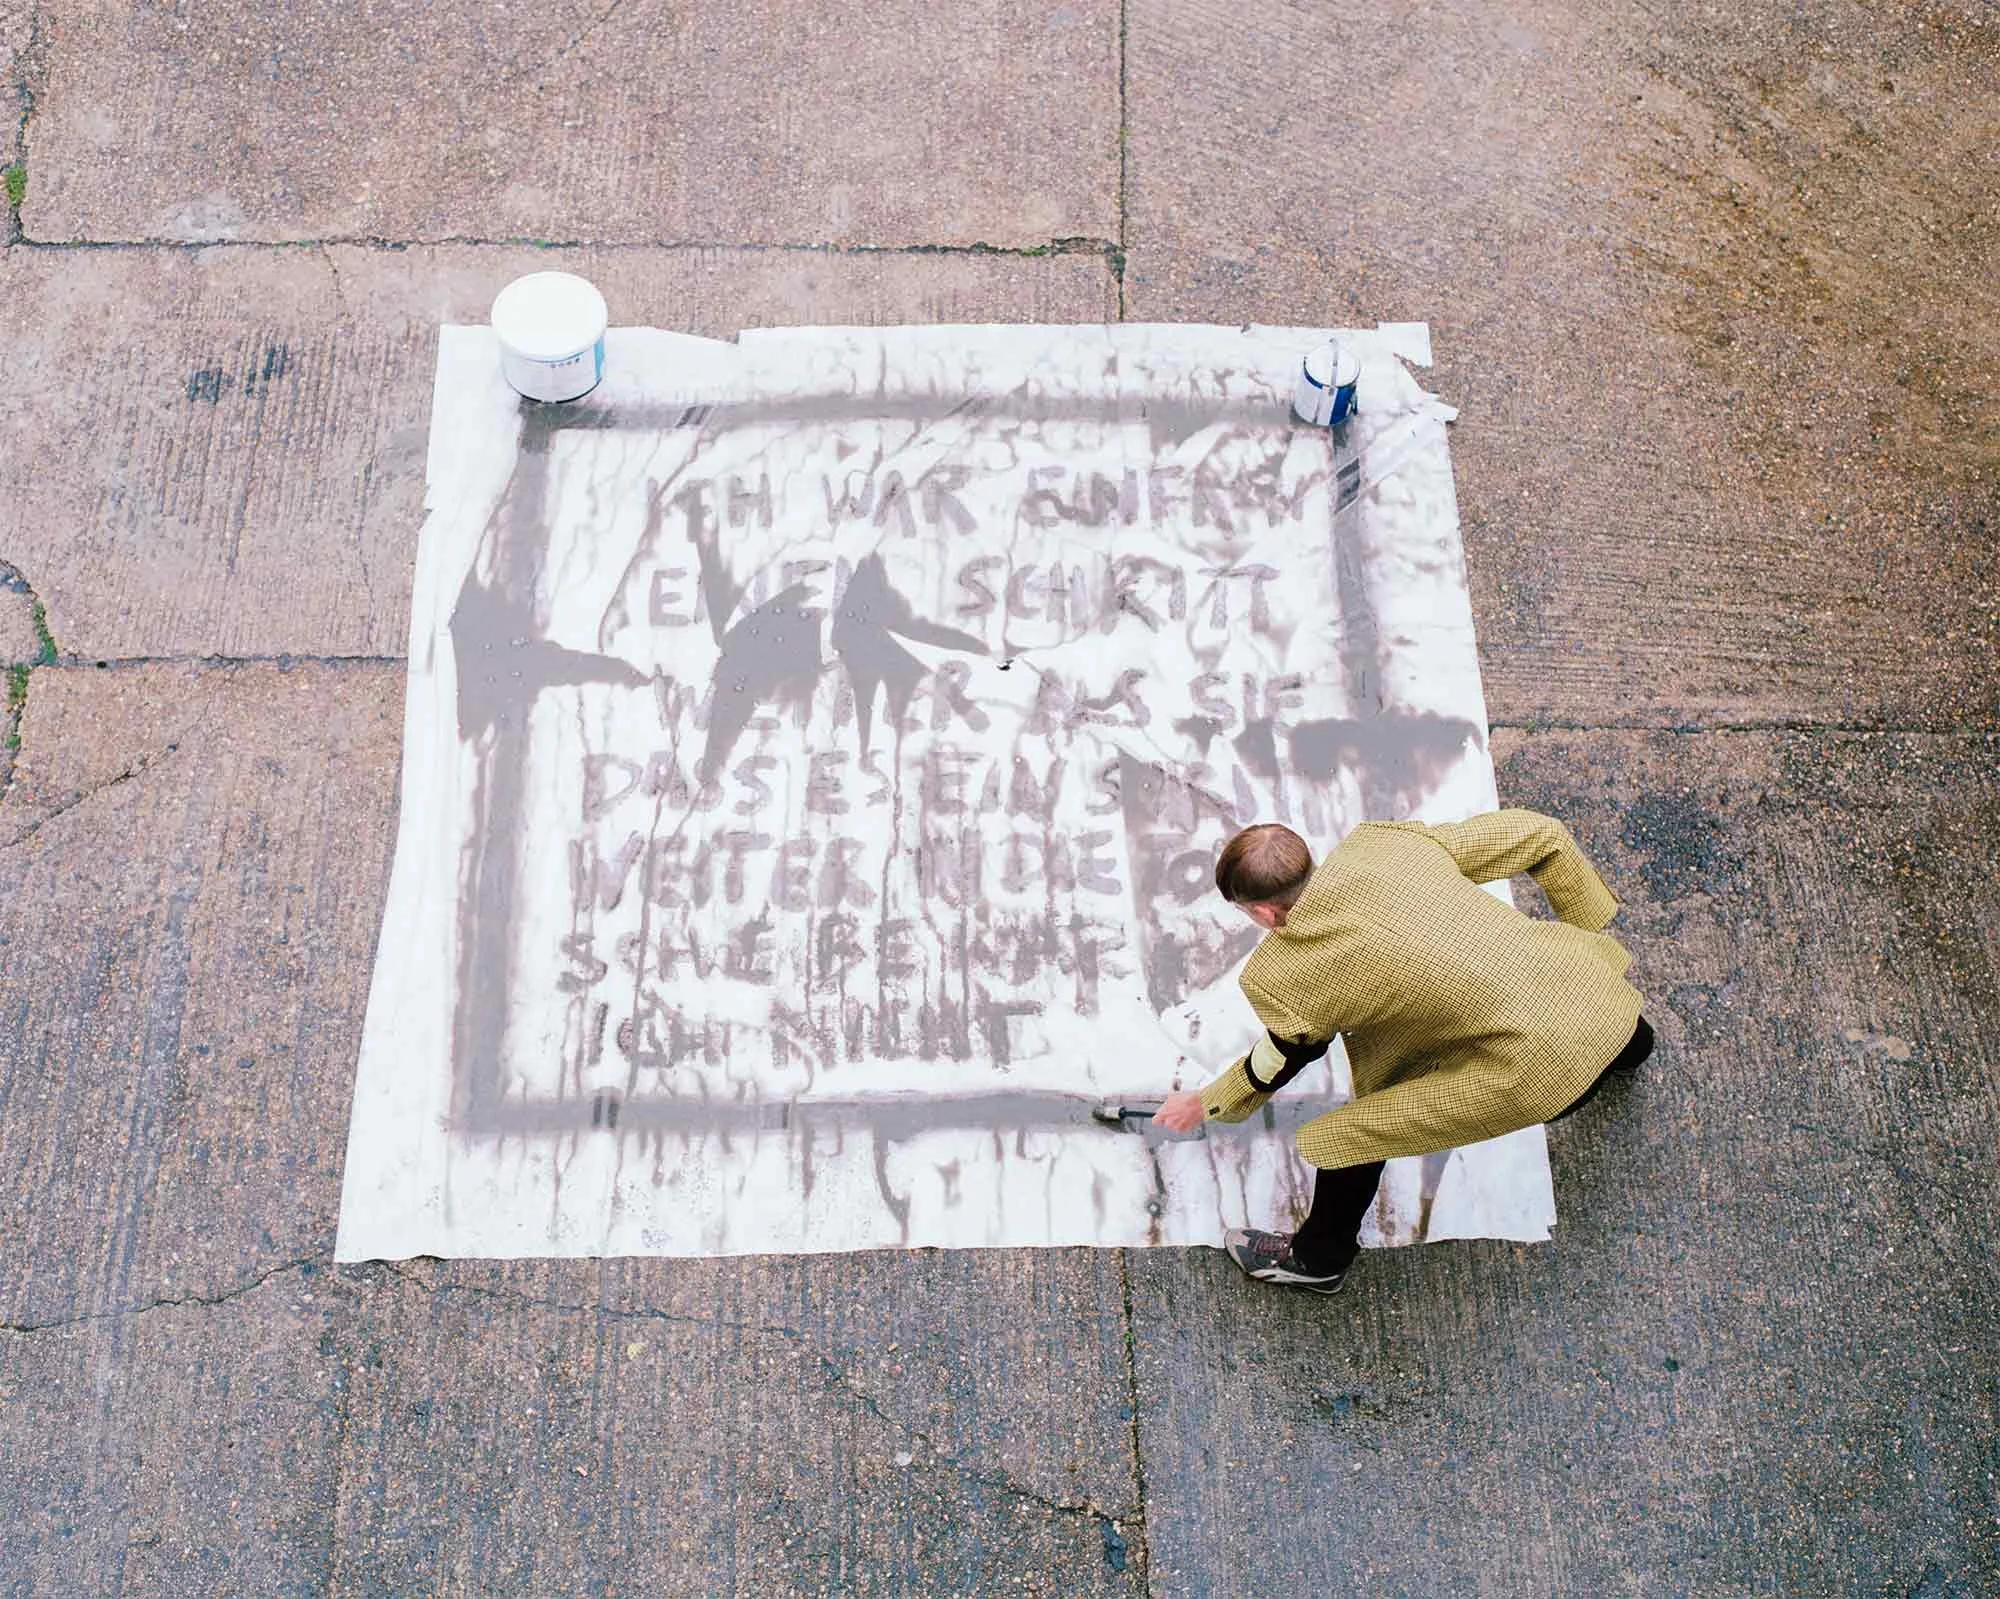 ICH WAR EINFACH
EINEN SCHRITT
WEITER ALS SIE
DASS ES EIN SCHRITT
WEITER IN DIE
SCHEIBE WAR
ICH NICHT